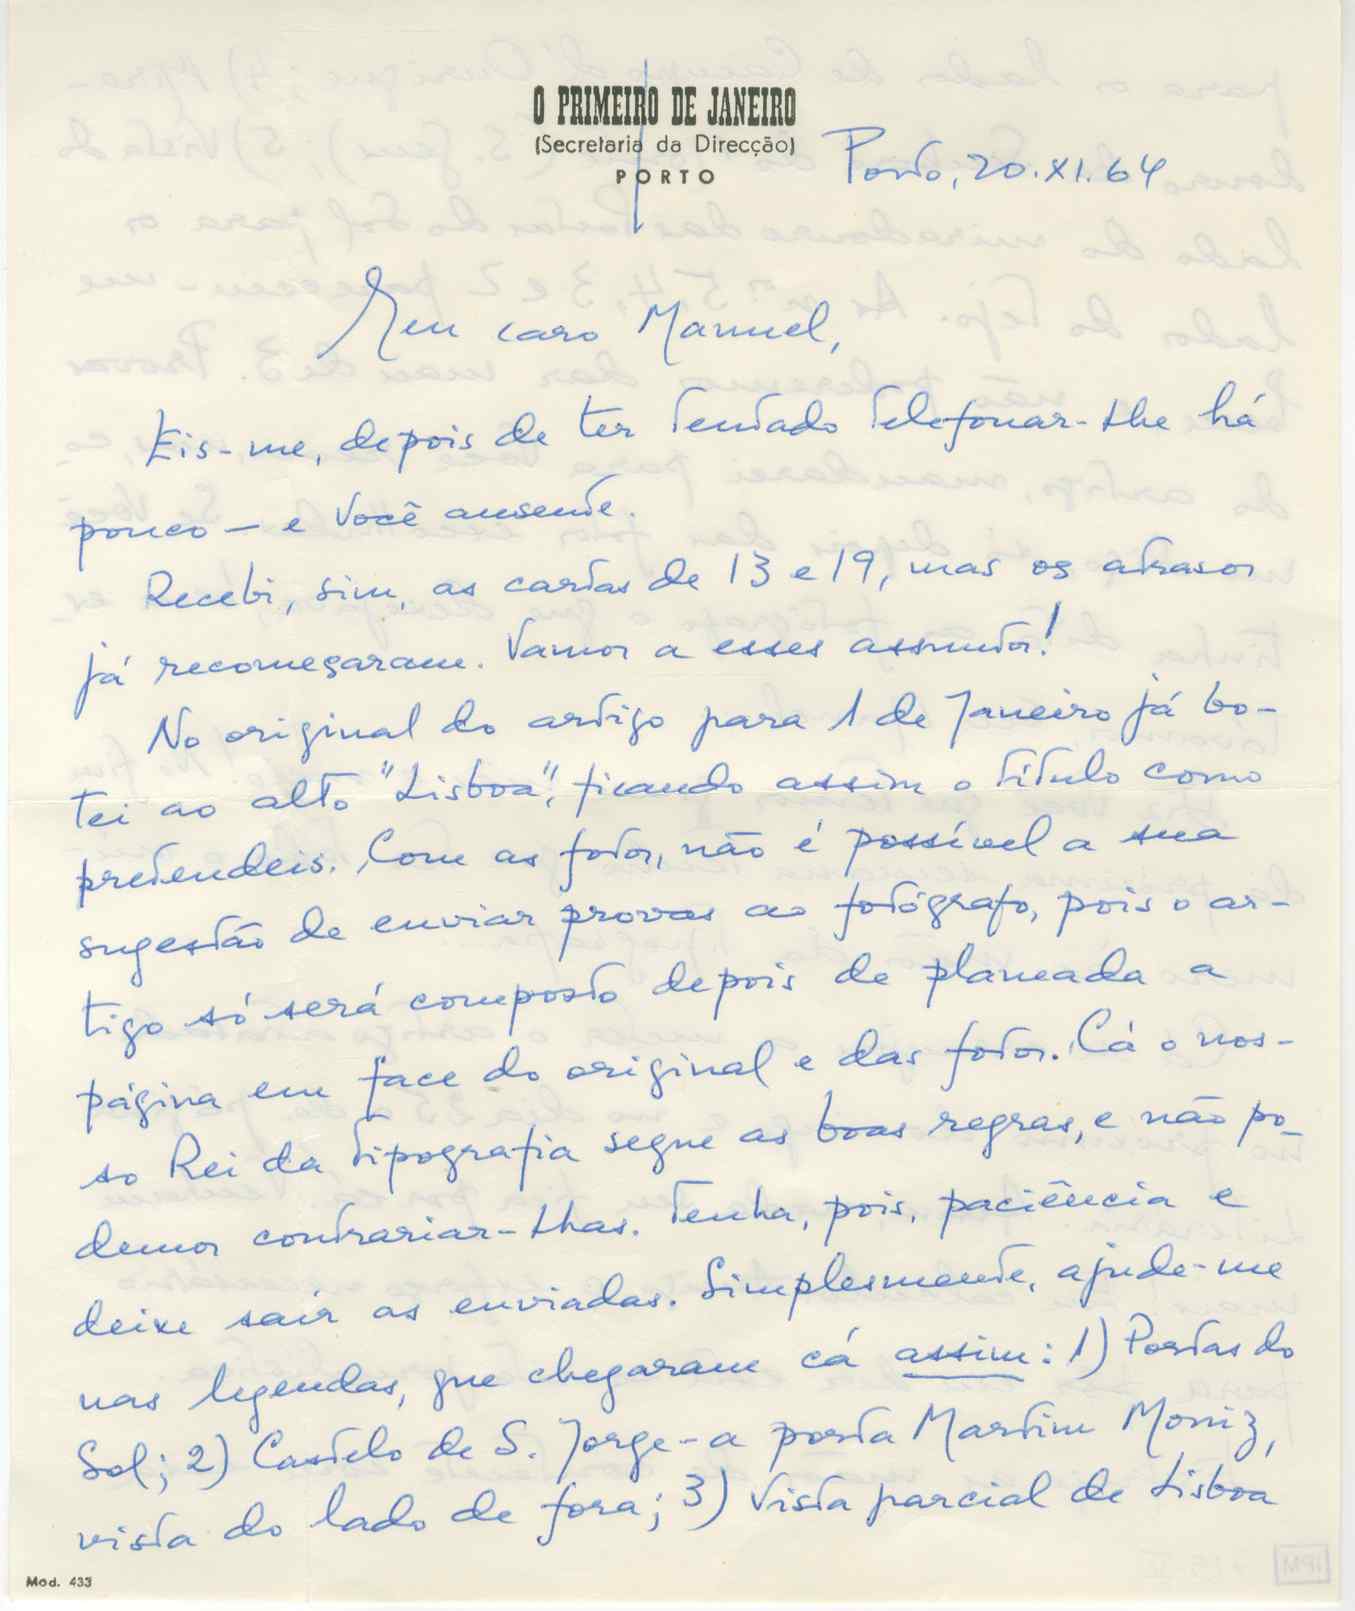 O PRIMEIRO DE JANEIRO
(Secretaria da Direcção)
PORTO
Porto, 20.XI.64
Meu caro Manuel,
Eis-me, depois de ter tentado telefonar-lhe há
pouco — e Você ausente.
Recebi, sim, as cartas de 13 e 19, mas os atrasos
já recomeçaram. Vamos a esses assuntos!
No original do artigo para 1 de Janeiro já bo-
tei ao alto "Lisboa", ficando assim o título como
pretendeis. Com as fotos, não é possível a sua
sugestão de enviar provas ao fotógrafo, pois o ar-
tigo só será composto depois de planeada a
página em face do original e das fotos. Cá o nos-
so Rei da Tipografia segue as boas regras, e não po-
demos contrariar-lhas. Tenha, pois, paciência e
deixe sair as enviadas. Simplesmente, ajude-me
nas legendas, que chegaram cá assim: 1) Portas do
Sol; 2) Castelo de S. Jorge - a porta Martim Moniz,
vista do lado de fora; 3) Vista parcial de Lisboa
Mod. 433